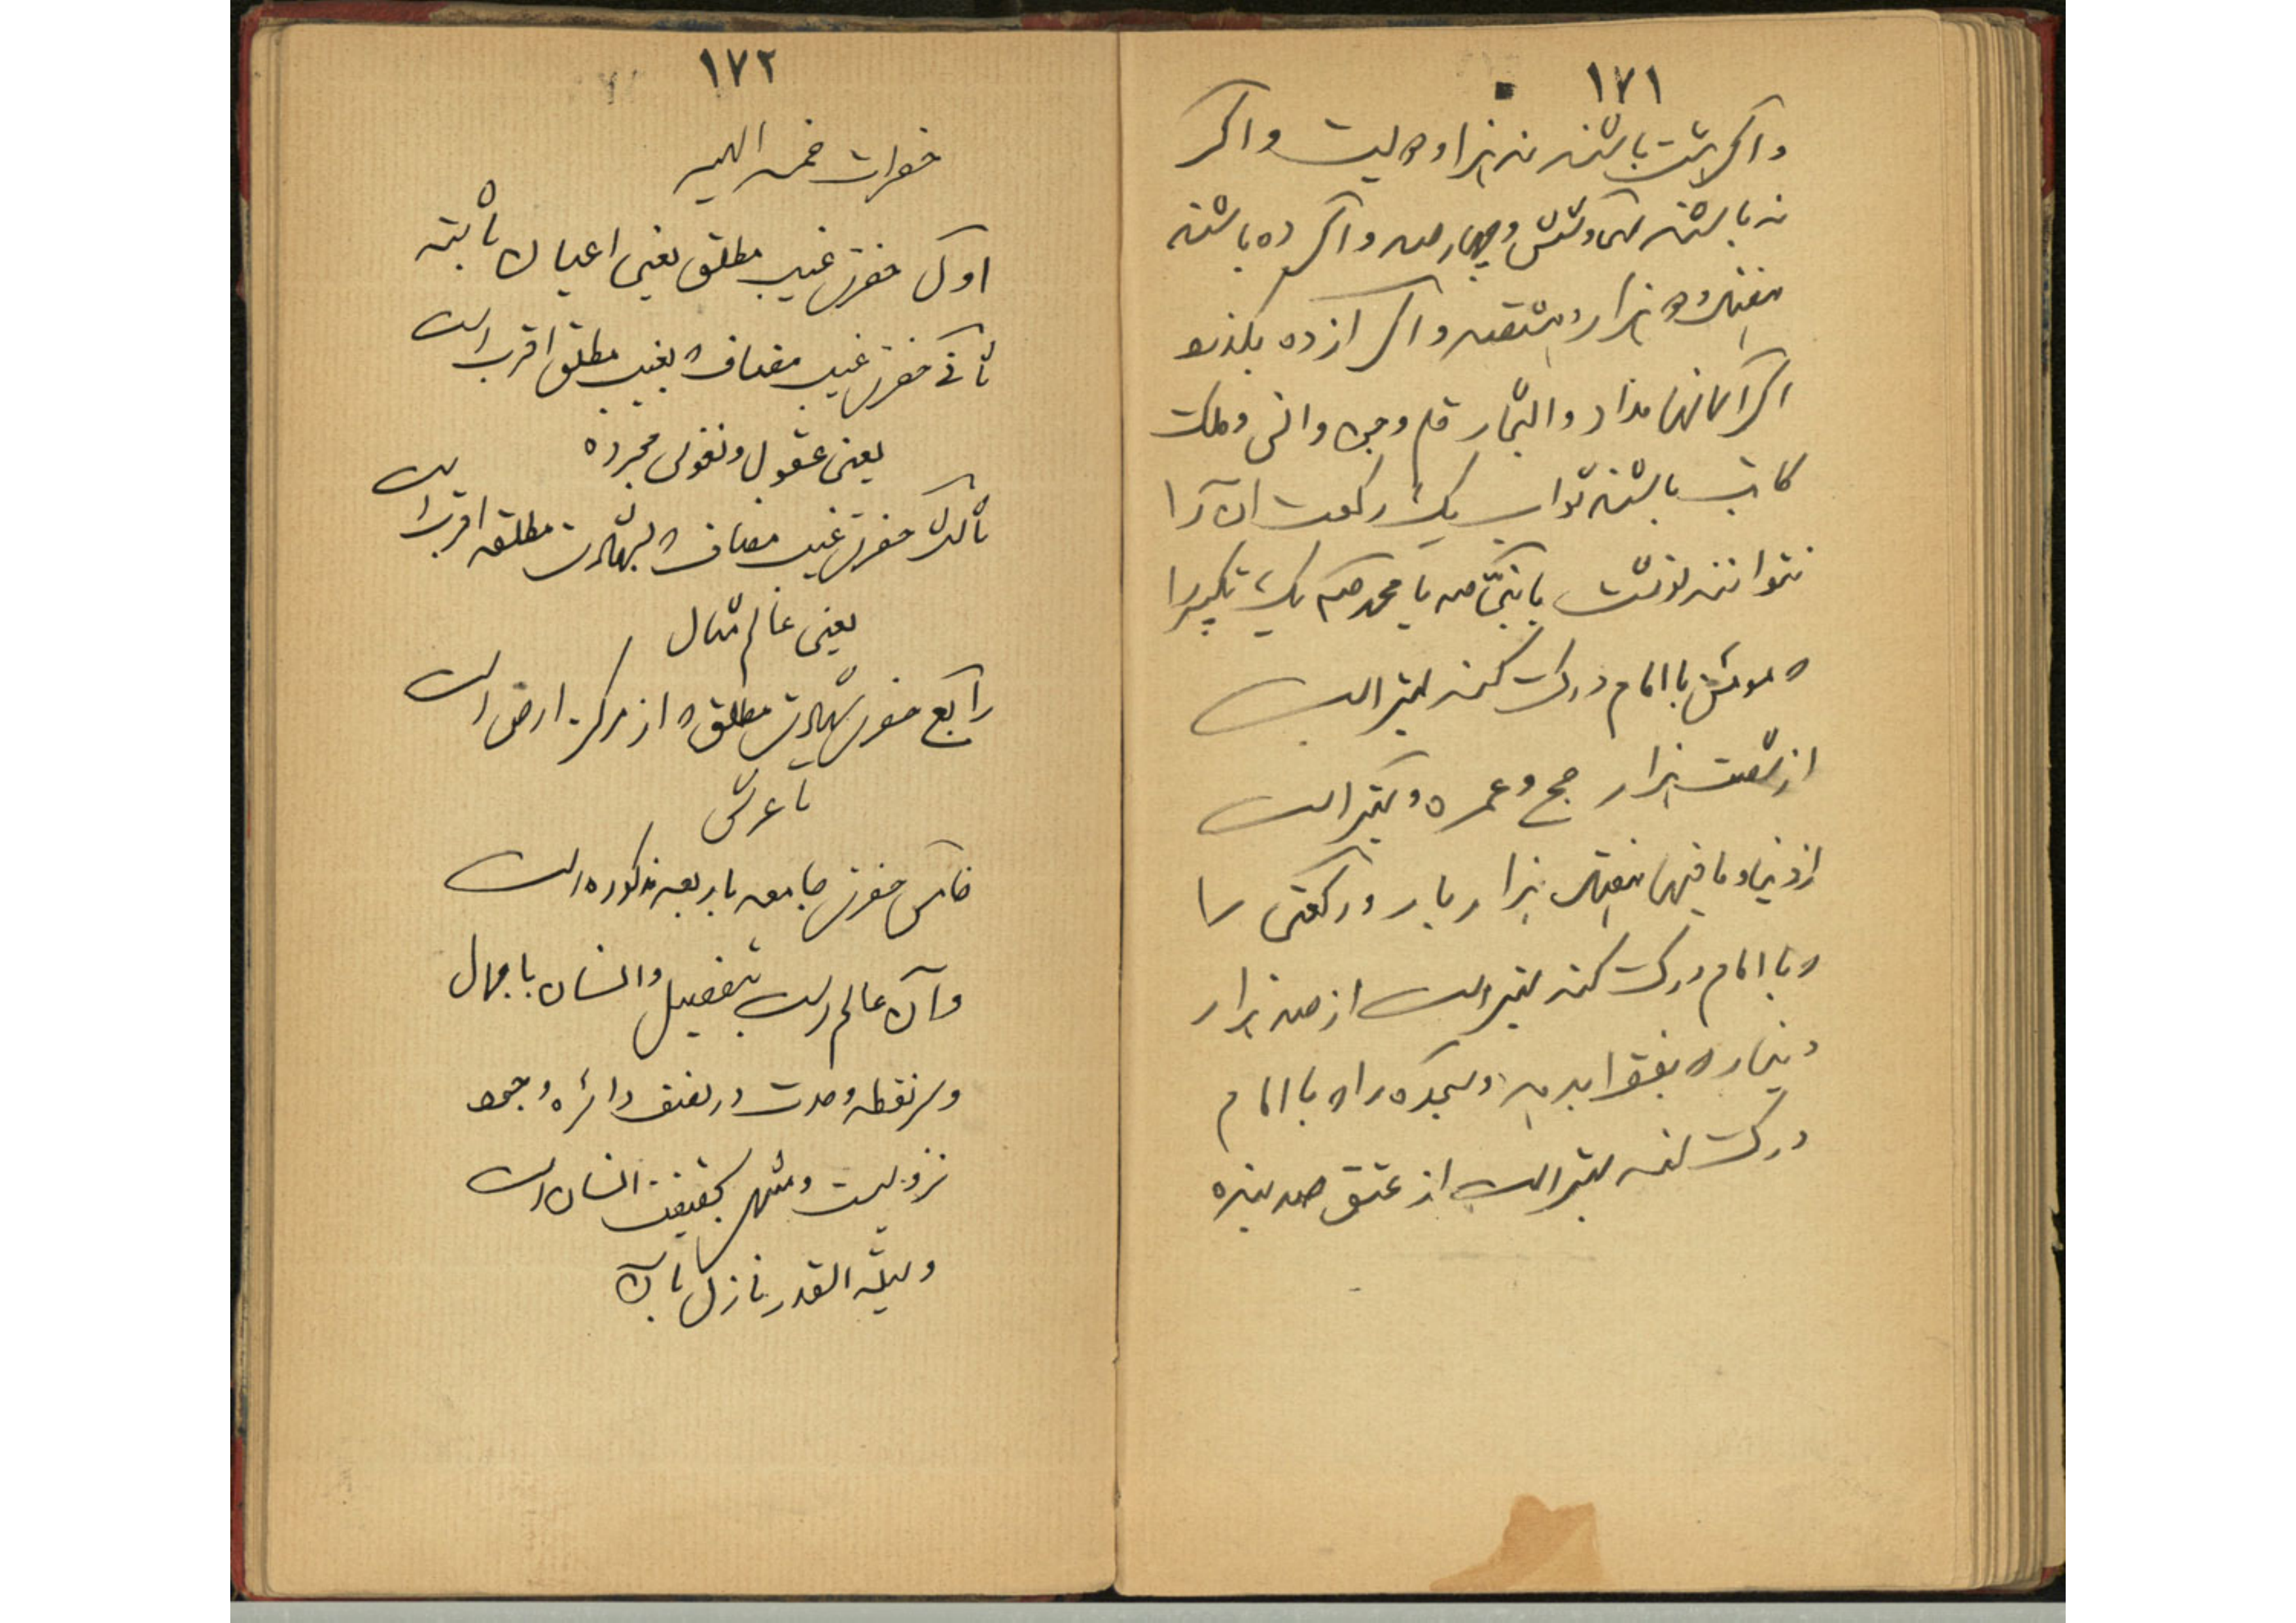 ١٧١
واگر هشت باشند نه هزار و دویست واگر
نه باشند سی و شش و چهار صد واگر ده باشند
هفتاد و هزار و هشتصد و اگر از ده بگذرد
اگر آسمانها مداد و اشجار قلم و جن و انس و ملک
کاتب باشند ثواب یک رکعت آن را
نتوانند نوشت یا نبی الله یا محمد یک تکبیر را
که مومن با امام درک کند بهتر است
از شصت هزار حج و عمره و بهتر است
از دنیا و ما فیها هفتاد هزار بار و رکعتی را
که با امام درک کند بهتر است از صد هزار
دینار که بفقرا بدهد و سجده را که با امام
درک کند بهتر است از عتق صد بنده
١٧٢
حضرات خمس الهیه
اول حضرت غیب مطلق یعنی اعیان ثابته
ثانی حضرت غیب مضاف که بغیب مطلق اقرب است
یعنی عقول و نفوس مجرده
ثالث حضرت غیب مضاف که بشهادت مطلقه اقرب است
یعنی عالم مثال
رابع حضرت شهادت مطلق که از مرکز ارض است
تا عرش
خامس حضرت جامعه باربعه مذکوره است
و آن عالم است بتفصیل و انسان باجمال
و سر نقطه وحدت در نصف دائره وجود
نزولیست و منتهی بحقیقت انسان است
و لیلة القدر نازل بآن